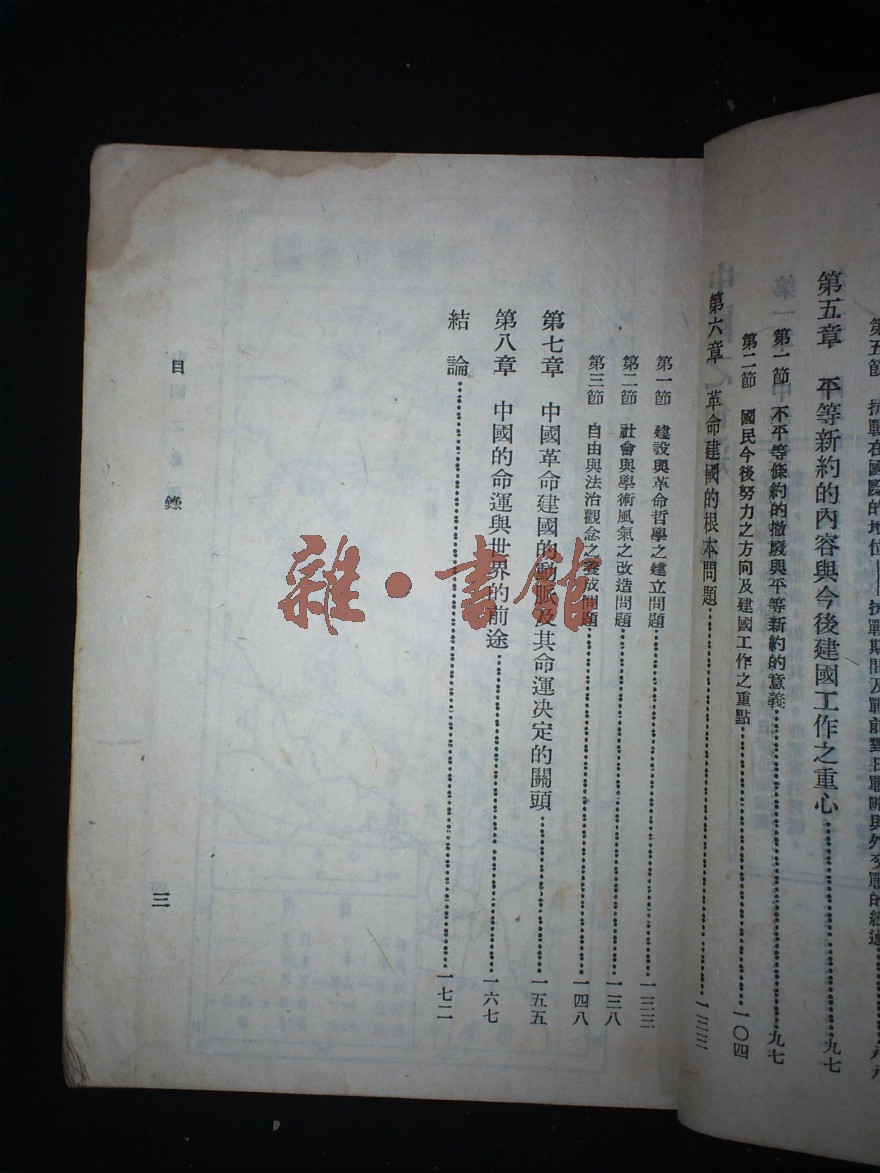 第五節 抗戰在國際的地位——抗戰期間及戰前對日戰略與外交戰的經過……八八
第五章 平等新約的內容與今後建國工作之重心……九七
第一節 不平等條約的撤廢與平等新約的意義……九七
第二節 國民今後努力之方向及建國工作之重點……一〇四
第六章 革命建國的根本問題……一三三
第一節 建設與革命哲學之建立問題……一三三
第二節 社會與學術風氣之改造問題……一三八
第三節 自由與法治觀念之養成問題……一四八
第七章 中國革命建國的動脈及其命運決定的關頭……一五五
第八章 中國的命運與世界的前途……一六七
結論……一七二
目錄
三
雜·書館